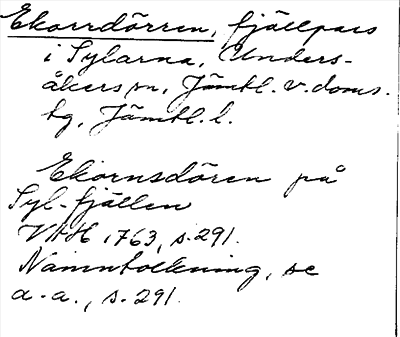 Ekorrdörren, fjällpass
i Sylarna, Unders-
åkers sn, Jämtl. v. doms.
tg, Jämtl. l.
Ekornsdören på
Syl-fjällen
VAH 1763, s. 291.
Namntolkning, se
a. a., s. 291.